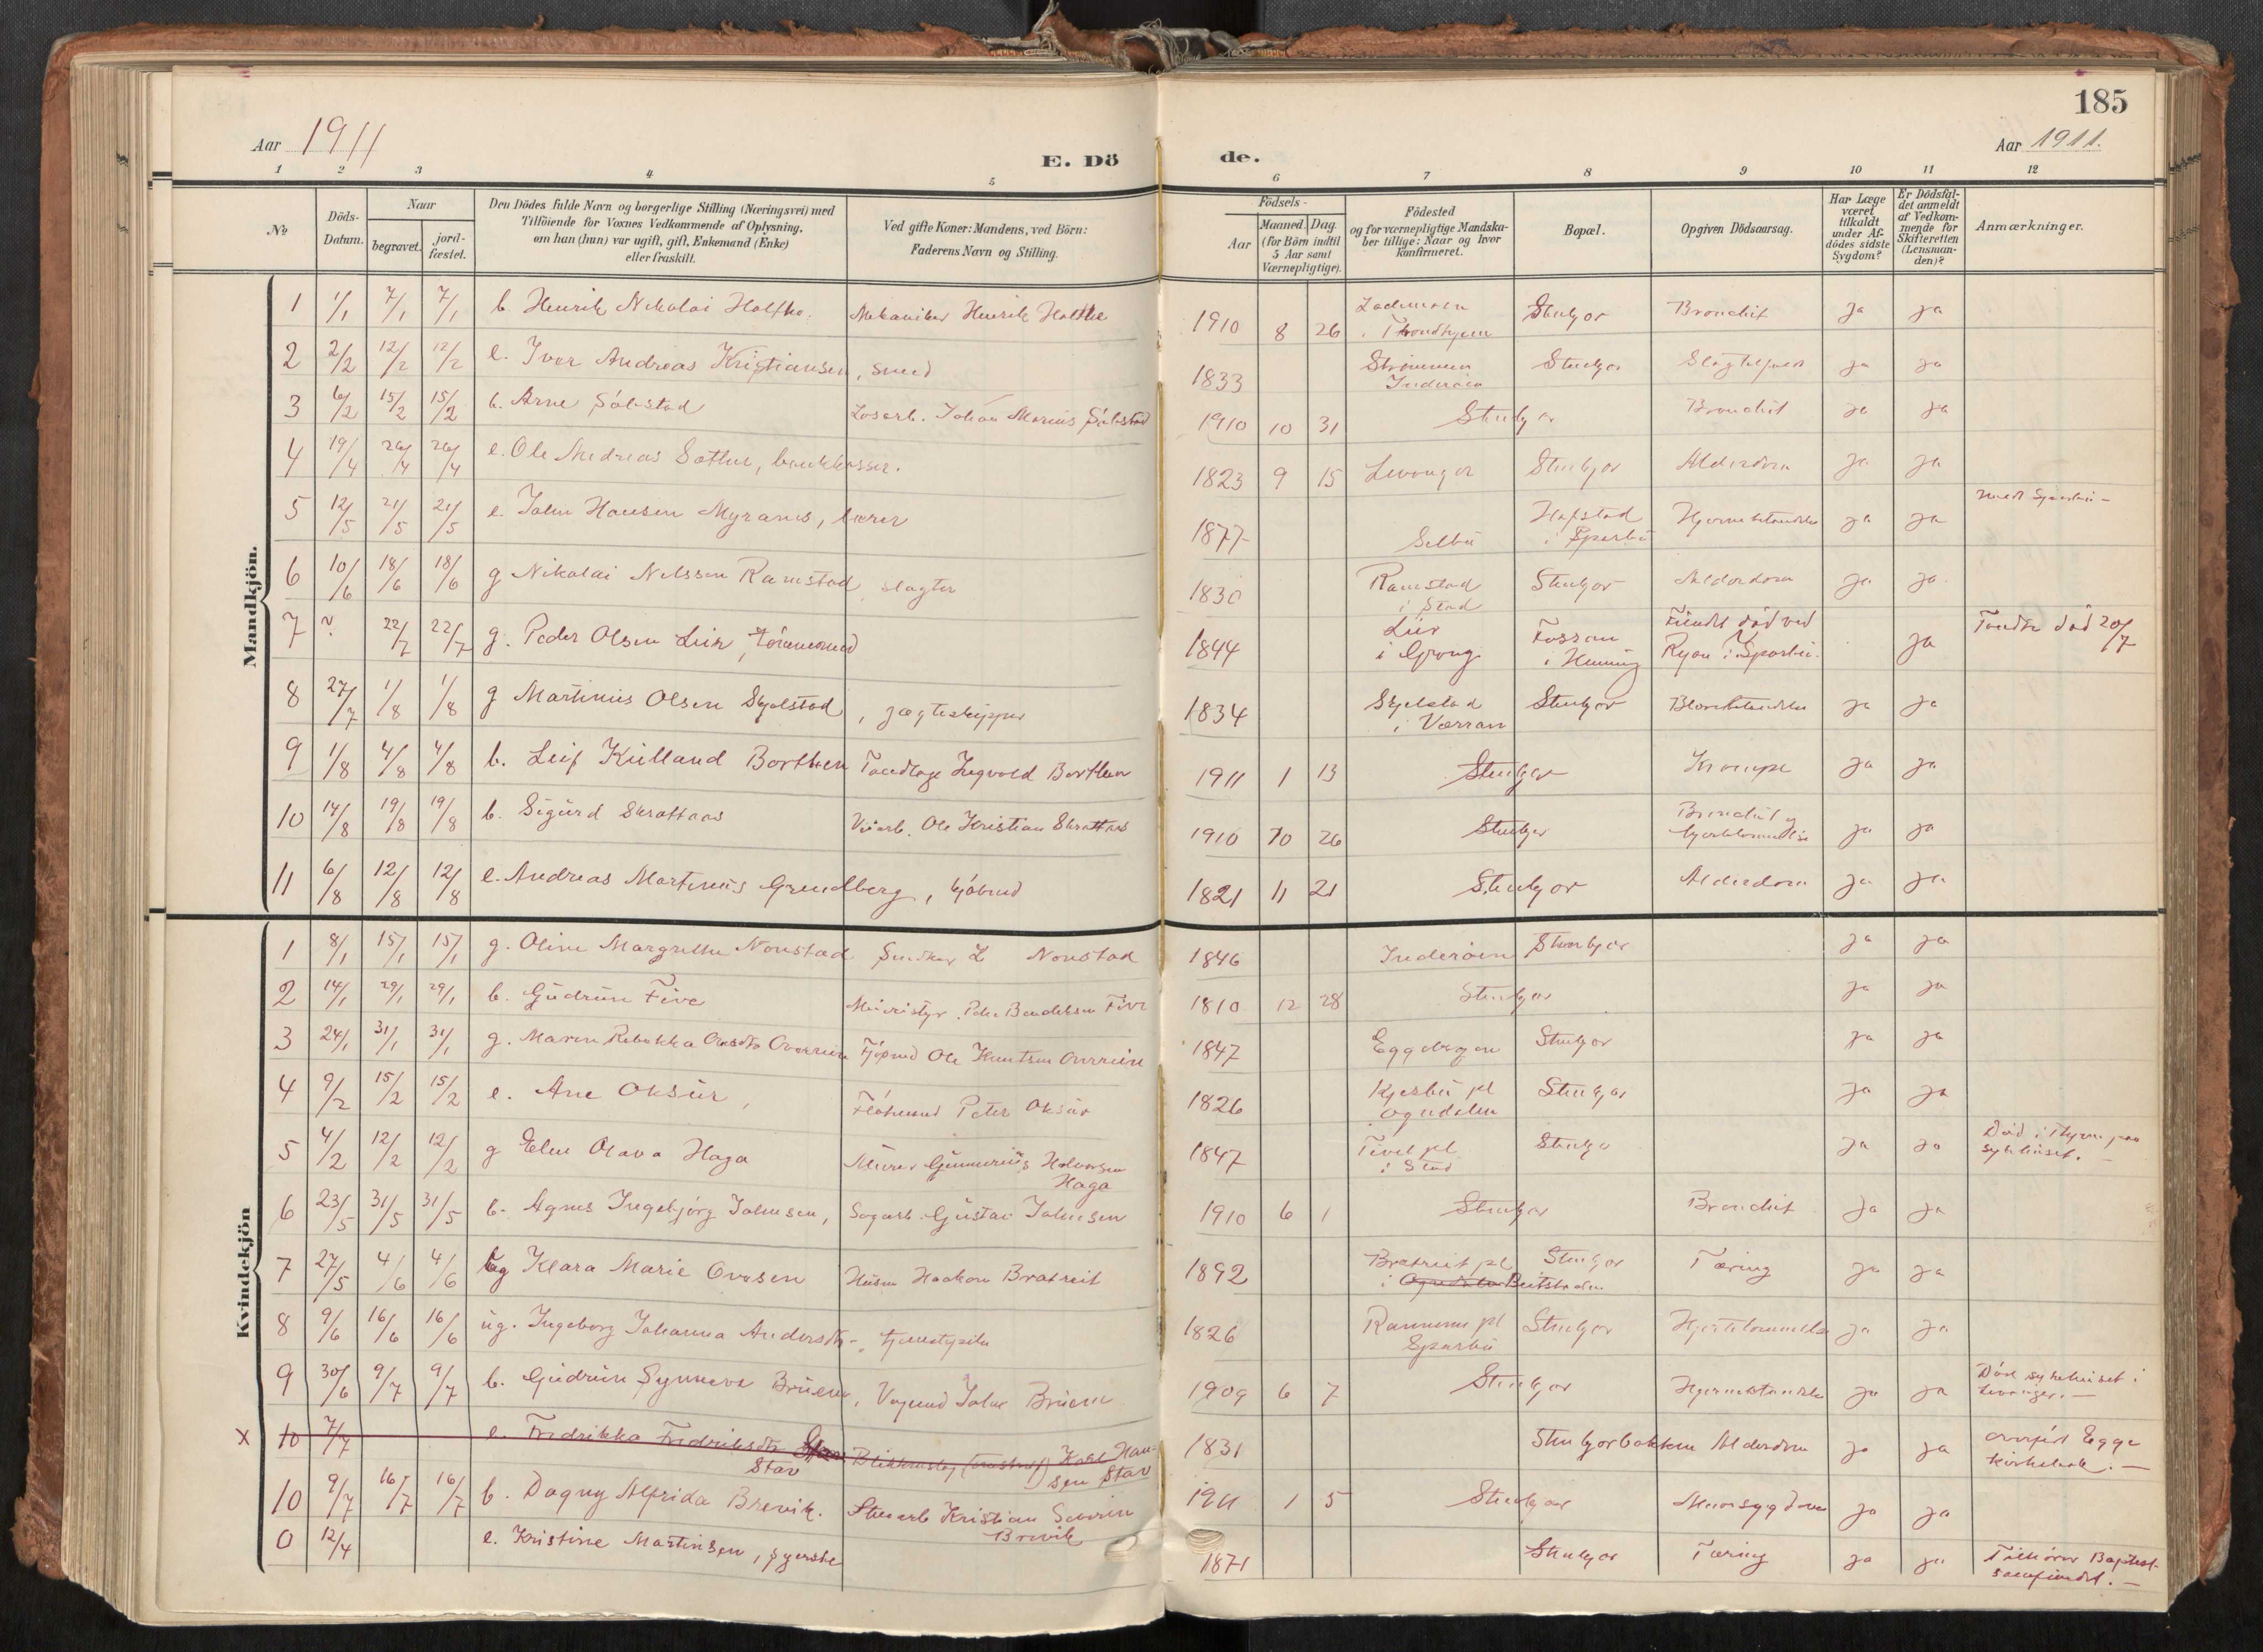 185
Aar 1911
Aar 1911.
E. Dö de.
1 2 3 4 5 6 7 8 9 10 11 12
No
Döds-Datum.
Naar
begravet.
jord-fæstet.
Den Dödes fulde Navn og borgerlige Stilling (Næringsvei) med
Tilföiende for Voxnes Vedkommende af Oplysning,
om han (hun) var ugift, gift, Enkemand (Enke)
eller fraskilt.
Ved gifte Koner: Mandens, ved Börn:
Faderens Navn og Stilling.
Födsels-
Aar
Maaned. Dag.
(for Börn indtil
5 Aar samt
Værnepligtige).
Födested
og for værnepligtige Mandska-
ber tillige: Naar og hvor
konfirmeret.
Bopæl.
Opgiven Dödsaarsag.
Har Læge
været
tilkaldt
under Af-
dödes sidste
Sygdom?
Er Dödsfal-
det anmeldt
af Vedkom-
mende for
Skifteretten
(Lensman-
den)?
Anmærkninger.
Mandkjön.
1 1/1 7/1 7/1 b. Henrik Nikolai Holthe. Mekaniker Henrik Holthe 1910 8 26 i Trondhjem Stenkjær Bronchit ja ja
2 2/2 12/2 12/2 e. Iver Andreas Kristiansen, smed 1833 Strømmen Inderöen Stenkjær ja ja
3 6/2 15/2 15/2 b. Arne Salistad Losarb. Johan Marius 1910 10 31 Stenkjær Bronchit ja ja
4 19/4 26/4 26/4 e. Ole Andreas Sather, bankkasser. 1823 9 15 Levanger Stenkjær Alderdom ja ja
5 12/5 21/5 21/5 e. John Hansen Myranes, lærer 1877 Selbu Hafstad i Sparbu Hjernebetændelse ja ja
6 10/6 18/6 18/6 g Nikolai Nelssen Ramstad, slagter 1830 Ramstad i Stod Stenkjær Alderdom ja ja
7 ? 22/7 22/7 g. Peder Olsen Luir, 1844 Luir i Grong Fossem i Henning Fundet död ved Ryan i Sparbu. ja Funden död 20/7
8 27/7 1/8 1/8 g Martinus Olsen Skjelstad, jægteskipper 1834 Skjelstad i Værran Stenkjær ja ja
9 1/8 4/8 4/8 b. Leif Kielland Borthen Tandlæge Ingvald Borthen 1911 1 13 Stenkjær Krampe ja ja
10 14/8 19/8 19/8 b. Sigurd Skrattaas Veiarb. Ole Kristian Skrattaas 1910 10 26 Stenkjær Bronchit og hjertelammelse ja ja
11 6/8 12/8 12/8 e. Andreas Martinus Grundberg, kjöbmd 1821 11 21 Stenkjær Alderdom ja ja
Kvindekjön
1 8/1 15/1 15/1 g. Oline Margrethe Nonstad Snedker L Nonstad 1846 Inderöen Stenkjær ja ja
2 14/1 29/1 29/1 b. Gudrun Five Peter Bendiksen Five 1810 12 28 Stenkjær ja ja
3 24/1 31/1 31/1 g. Maren Rebekka Overrein Kjöpmd Ole Knutsen Overrein 1847 Stenkjær ja ja
4 9/2 15/2 15/2 e. Ane Oksur, Peter Oksur 1826 Kjesbu pl Ogndalen Stenkjær ja ja
5 4/2 12/2 12/2 g Elen Olava Haga Murer Gunnerius Halvorsen Haga 1847 pl i Stod Stenkjær ja ja Död i Thjem paa sykehuset.
6 23/5 31/5 31/5 b. Agnes Ingebjörg Johnsen, Sagarb. Gustav Johnsen 1910 6 1 Stenkjær Bronchit ja ja
7 27/5 4/6 4/6 ug Klara Marie Ovesen Husm Haakon Bratreit 1892 Bratreit pl i Ogndalen Beitstaden Stenkjær Tæring ja ja
8 9/6 16/6 16/6 ug. Ingeborg Johanna Andersdtr, tjenestepike 1826 pl Sparbu Stenkjær Hjertelammelse ja ja
9 30/6 9/7 9/7 b. Gudrun Synneve Bruem, Vognmd Johan Bruem 1909 6 7 Stenkjær Hjernebetændelse ja ja Död sykehuset i Levanger.
x 10 7/7 e. Fredrikka Fredriksdtr Stav Karl Hansen Stav 1831 Stenkjærbakken Alderdom ja ja overfört Egge kirkebok.
10 9/7 16/7 16/7 b. Dagny Alfrida Brevik. Stenarb Kristian Severin Brevik 1911 1 5 Stenkjær Mavesygdom ja ja
0 12/4 e. Kristine Martinsen, syerske 1871 Stenkjær Tæring ja ja Tilhörer Baptist-samfundet.